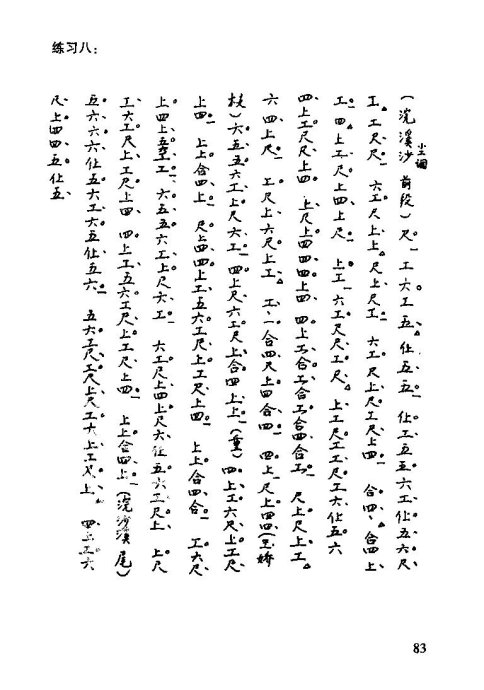 练习八：
(浣溪沙 前段) 尺 工六工五 仕五五 仕工五五六工仕五六尺
小工调
工工尺尺 六工尺上上 尺上尺工 六工尺上尺工尺上四 合四 合四上
工四上工尺上四上尺 上工六工尺尺工尺 上工尺工工尺工六仕五六
四上工尺尺上四 上尺上四四四上四 四上工合工合工合四合工 尺上尺上工
六四上尺 工尺上六尺上工 工一合四尺上四合四 四上尺上四四(玉娇
枝)六五五六工上尺六工 四上尺六工尺上合四上上(重)四上工六尺上工尺
上四 上上合四上 尺上四四上工五六工尺上工尺上四 上上合四合 工六尺
上四上五工 六五五六工上尺六工 六工尺上四上尺六仕五六工尺上 上尺
工六工尺上工尺上四 四上工五六工尺上工尺上四 上上合四上(浣沙溪尾)
五六六六仕五六工六五仕五六 五六工尺工尺上尺工六上工尺上 四上工六
尺上四四五仕五
83